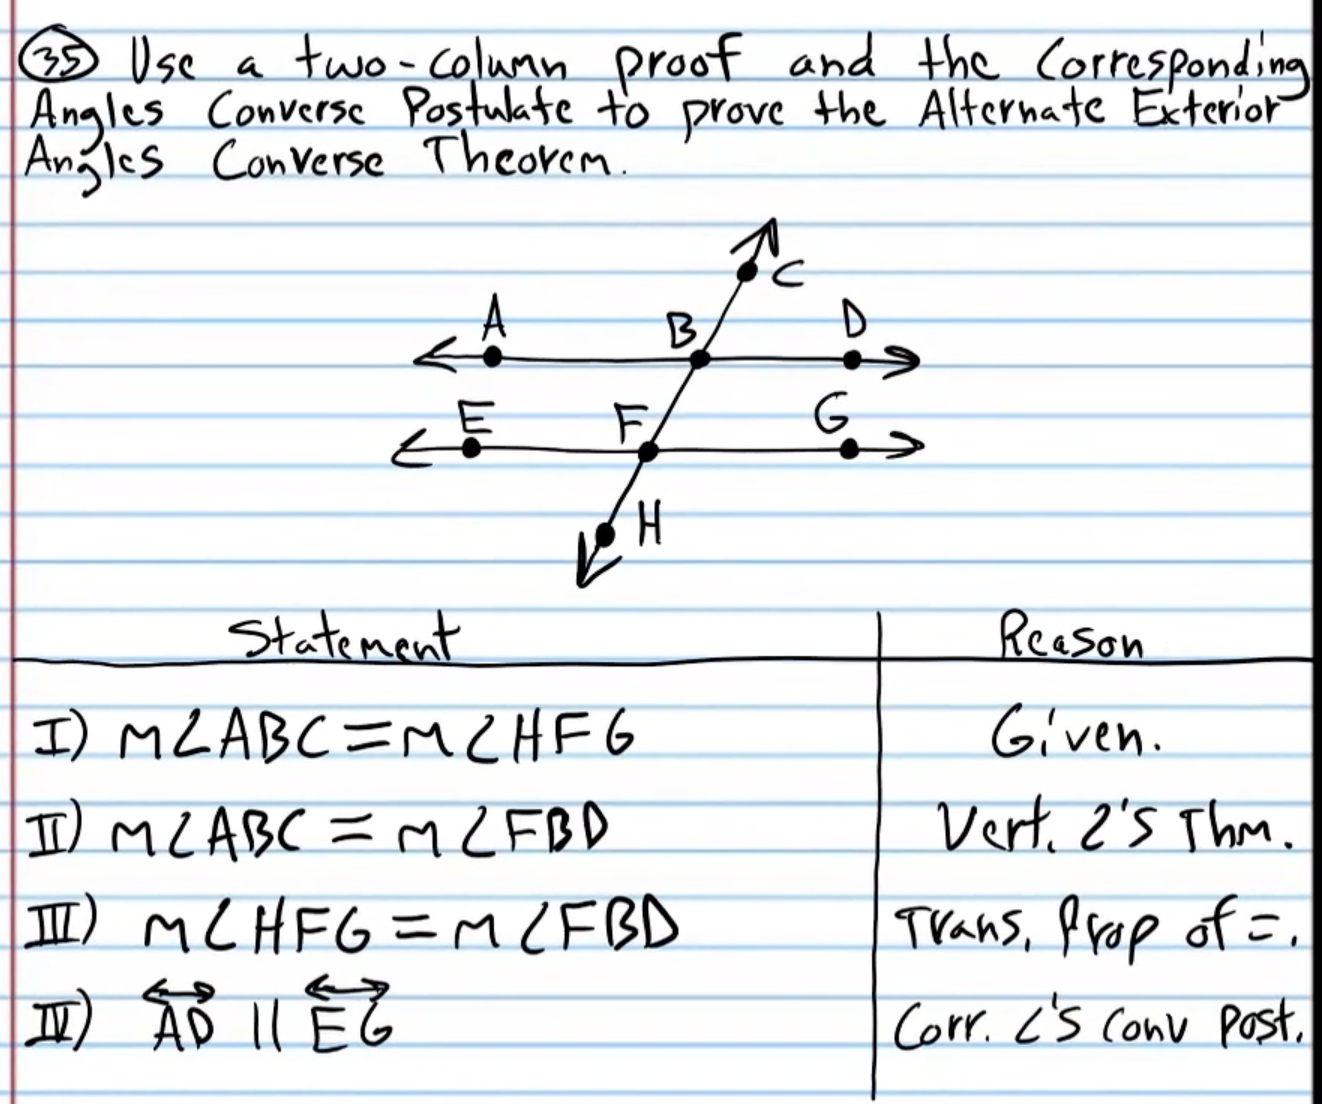 35 Use a two-column proof and the Corresponding
Angles Converse Postulate to prove the Alternate Exterior
Angles Converse Theorem.
C
A B D
E F G
H
Statement Reason
I) m∠ABC = m∠HFG Given.
II) m∠ABC = m∠FBD Vert. ∠'s Thm.
III) m∠HFG = m∠FBD Trans. Prop of =.
IV) AD || EG Corr. ∠'s Conv Post.